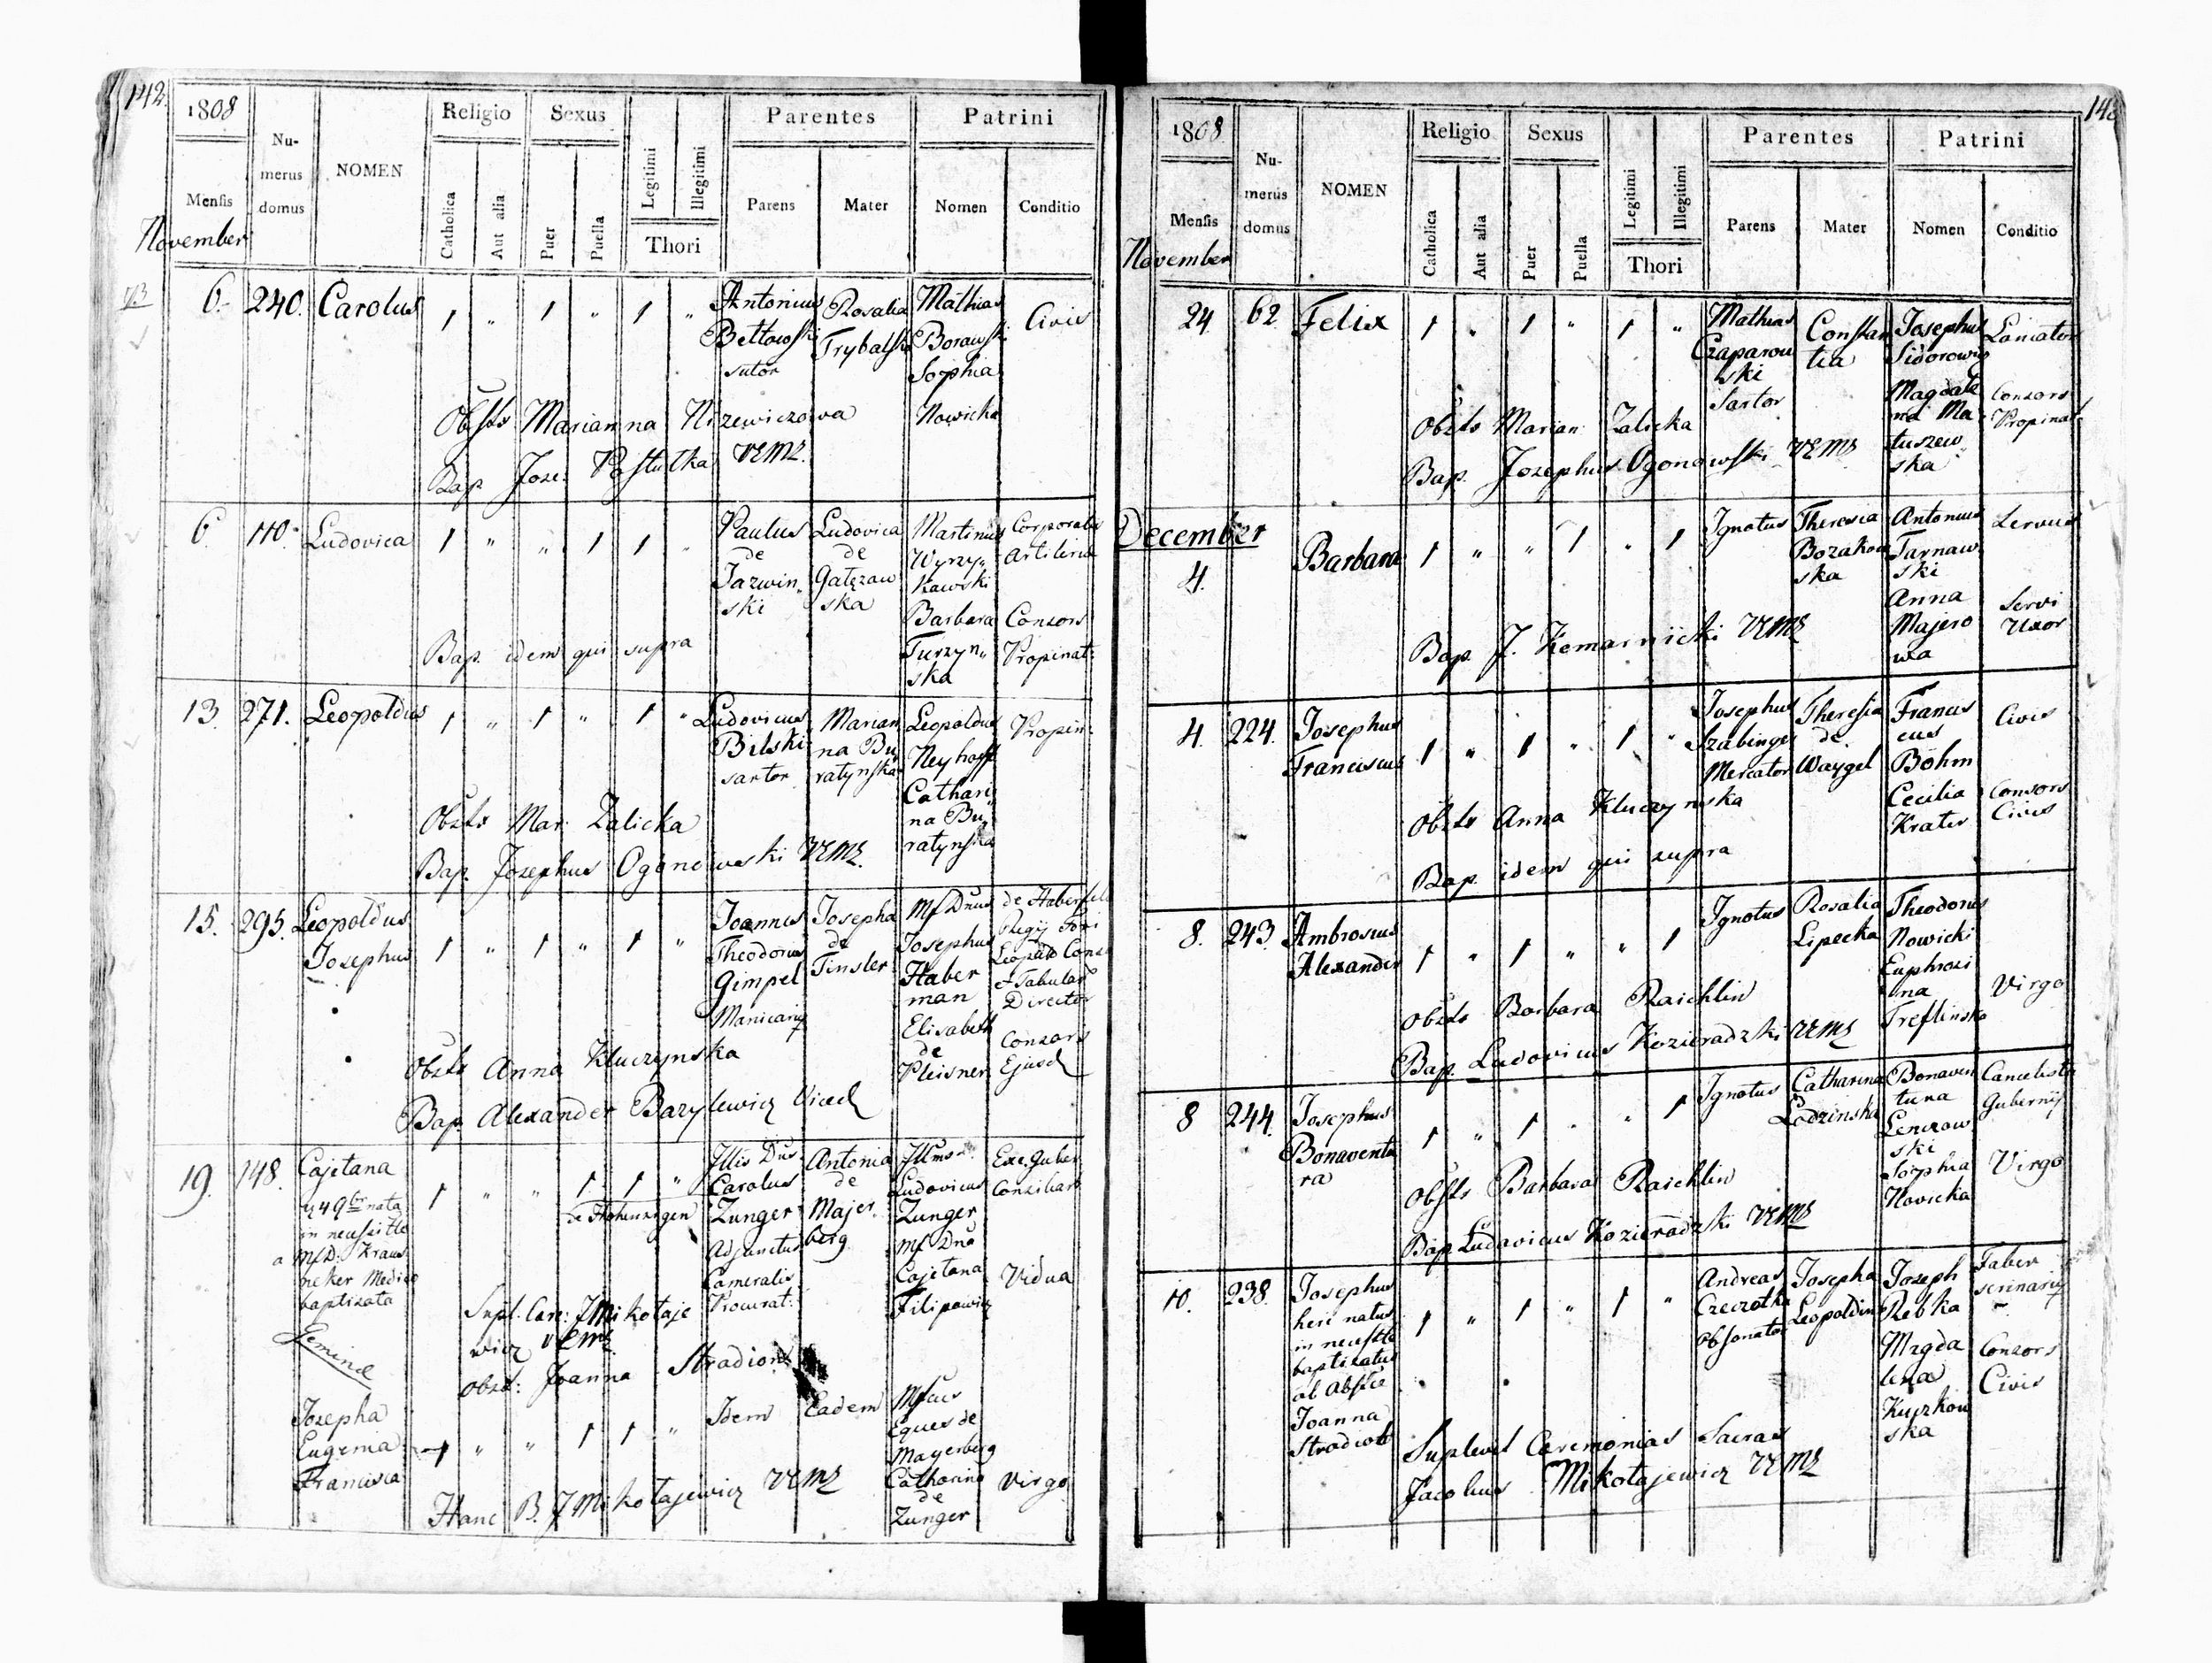 142.
1808
Nu-
merus
domus
NOMEN
Religio
Sexus
Legitimi
Illegitimi
Thori
Parentes
Patrini
Mensis
Catholica
Aut alia
Puer
Puella
Parens
Mater
Nomen
Conditio
November
6. 240. Carolus 1 " 1 " 1 "
Antonius
Bettowski
sutor
Rosalia
Trybalska
Mathias
Borawski
Sophia
Nowicka
Civis
Obsts Marianna Nizewiczowa
Bap. Jose: Postulka VEMS.
6. 110. Ludovica 1 " " 1 1 "
Paulus
de
Jazwin„
ski
Ludovica
de
Gałęzaw
ska
Martinus
Wyrzy„
kawski
Barbara
Turzyn„
ska
Corporalis
Artileriae
Consors
Propinat:
Bap. idem qui supra
13. 271. Leopoldus 1 " 1 " 1 "
Ludovicus
Bilski
sartor
Marian
na Bu
ratynska
Leopoldus
Neyhoff
Cathari
na Bu„
ratynska
Propin:
Obsts Mar: Zalicka
Bap. Josephus Ogonowski VEMS.
15. 295. Leopoldus
Josephus 1 " 1 " 1 "
Joannes
Theodorus
Gimpel
Manicarij
Josepha
de
Tinsler
Josephus
Haber
man
Elisabeth
de
Pleisner
Regij Fori
& Tabular
Director
Consors
Ejusd
Obsts Anna Kluczynska
Bap. Alexander Bazylewicz
19. 148. Cajetana
nata
in necessitte
a
neker Medico
baptizata
1 " " 1 1 "
Carolus
Zunger
Adjunctus
Cameralis
Procurat:
Antonia
de
Majer
berg
Ludovicus
Zunger
Cajetana
Filipowicz
Exc. Guber
Consiliar
Vidua
Supl. Cere: J Mikołaje
wicz VEMS.
Obst: Joanna Stradiot
Josepha
Eugenia
Francisca
1 " " 1 1 "
Idem Eadem
Eques de
Mayerberg
Catharina
de
Zunger
Virgo
Hanc B. J Mikołajewicz VEMS
1808.
Nu-
merus
domus
NOMEN
Religio
Sexus
Legitimi
Illegitimi
Thori
Parentes
Patrini
Mensis
Catholica
Aut alia
Puer
Puella
Parens
Mater
Nomen
Conditio
November
24. 62. Felix 1 " 1 " 1 "
Mathias
Czaparow
ski
Sartor
Constan
tia
Josephus
Sidorowicz
Magdale
na Ma
tuszew
ska
Laniator
Consors
Propinat.
Obsts Marian: Zalicka
Bap. Josephus Ogonowski VEMS
December
4. Barbara 1 " " 1 " 1
Ignotus
Theresia
Bozakow
ska
Antonius
Tarnaw
ski
Anna
Majero
wa
Servus
Servi
Uxor
Bap. J. Komarnicki VEMS
4. 224. Josephus
Franciscus 1 " 1 " 1 "
Josephus
Szabinger
Mercator
Theresia
de
Waygel
Francis
cus
Böhm
Cecilia
Krater
Civis
Consors
Civis
Obsts Anna Kluczynska
Bap. idem qui supra
8. 243. Ambrosius
Alexander 1 " 1 " " 1
Ignotus
Rosalia
Lipecka
Theodorus
Nowicki
Euphrosi
na
Treflinska
Virgo
Obsts Barbara Raichlin
Bap. Ludovicus Kozieradzki VEMS
8 244. Josephus
Bonaventu
ra 1 " 1 " " 1
Ignotus
Catharina
Lodzinska
Bonaven
tura
Lenczow
ski
Sophia
Novicka
Cancelista
Gubernij
Virgo
Obsts Barbara Raichlin
Bap Ludovicus Kozieradzki VEMS
10. 238. Josephus
heri natus
in necessitte
baptizatus
ab Obstce
Joanna
Stradiot
1 " 1 " 1 "
Andreas
Czeczotka
Obsonator
Josepha
Leopoldine
Joseph
Rebka
Magda
lena
Kuyzkow
ska
Faber
scrinarij
Consors
Civis
Suplevit Caremonias Sacras
Jacobus Mikołajewicz VEMS